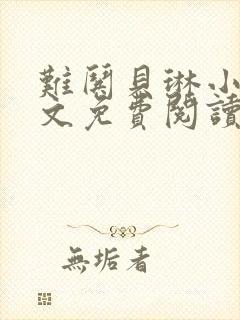 難鬨貝琳小
文免費閱讀
無垢者